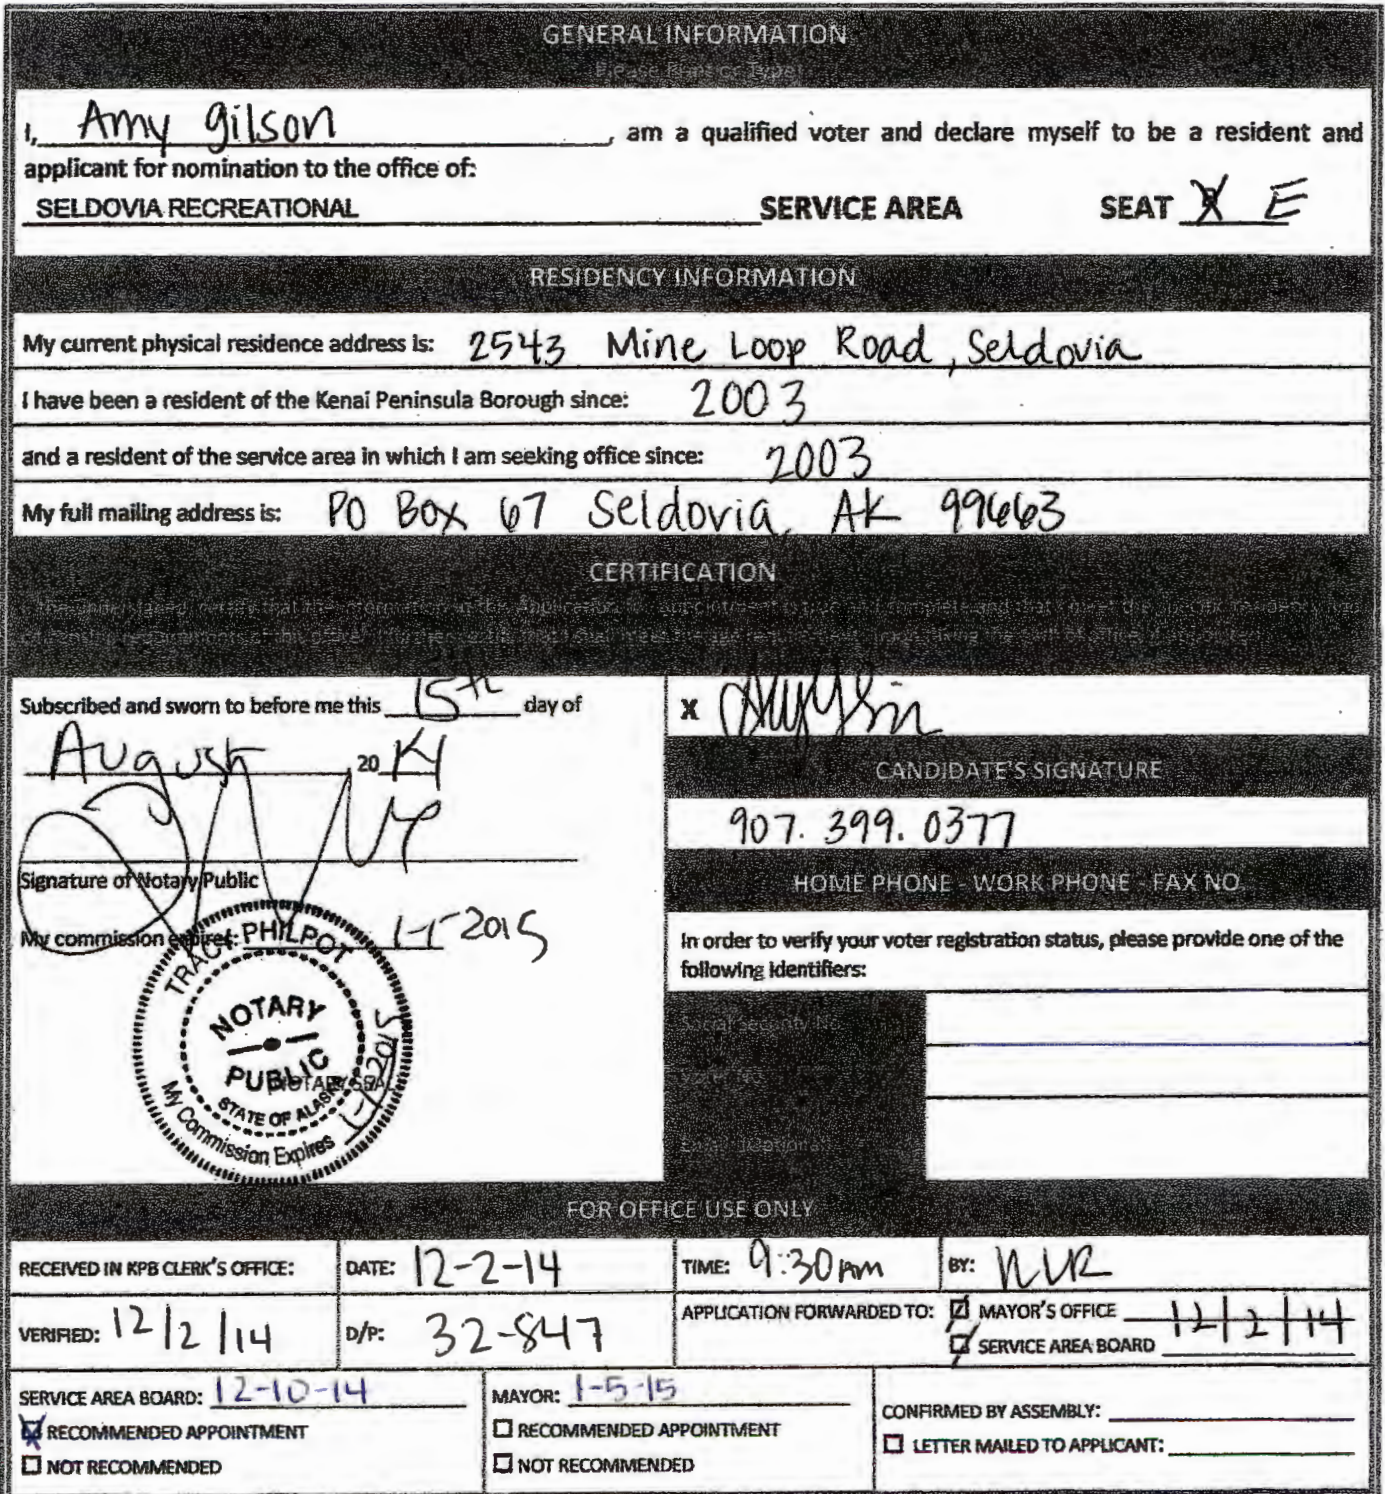 GENERAL INFORMATION
(Please Print or Type)
I, Amy Gilson, am a qualified voter and declare myself to be a resident and
applicant for nomination to the office of:
SELDOVIA RECREATIONAL SERVICE AREA SEAT X E
RESIDENCY INFORMATION
My current physical residence address is: 2543 Mine Loop Road, Seldovia
I have been a resident of the Kenai Peninsula Borough since: 2003
and a resident of the service area in which I am seeking office since: 2003
My full mailing address is: PO Box 67 Seldovia, AK 99663
CERTIFICATION
Subscribed and sworn to before me this 15th day of
August 2014
Signature of Notary Public
My commission expires: 1-1-2015
TRACE PHILPOT
NOTARY
PUBLIC
STATE OF ALASKA
My Commission Expires 1-1-2015
NOTARY SEAL
X
CANDIDATE'S SIGNATURE
907.399.0377
HOME PHONE - WORK PHONE - FAX NO
In order to verify your voter registration status, please provide one of the
following identifiers:
Social Security No.
FOR OFFICE USE ONLY
RECEIVED IN KPB CLERK'S OFFICE: DATE: 12-2-14 TIME: 9:30am BY: NUR
VERIFIED: 12/2/14 D/P: 32-847 APPLICATION FORWARDED TO: MAYOR'S OFFICE 12/2/14
SERVICE AREA BOARD
SERVICE AREA BOARD: 12-10-14 MAYOR: 1-5-15 CONFIRMED BY ASSEMBLY:
RECOMMENDED APPOINTMENT RECOMMENDED APPOINTMENT LETTER MAILED TO APPLICANT:
NOT RECOMMENDED NOT RECOMMENDED